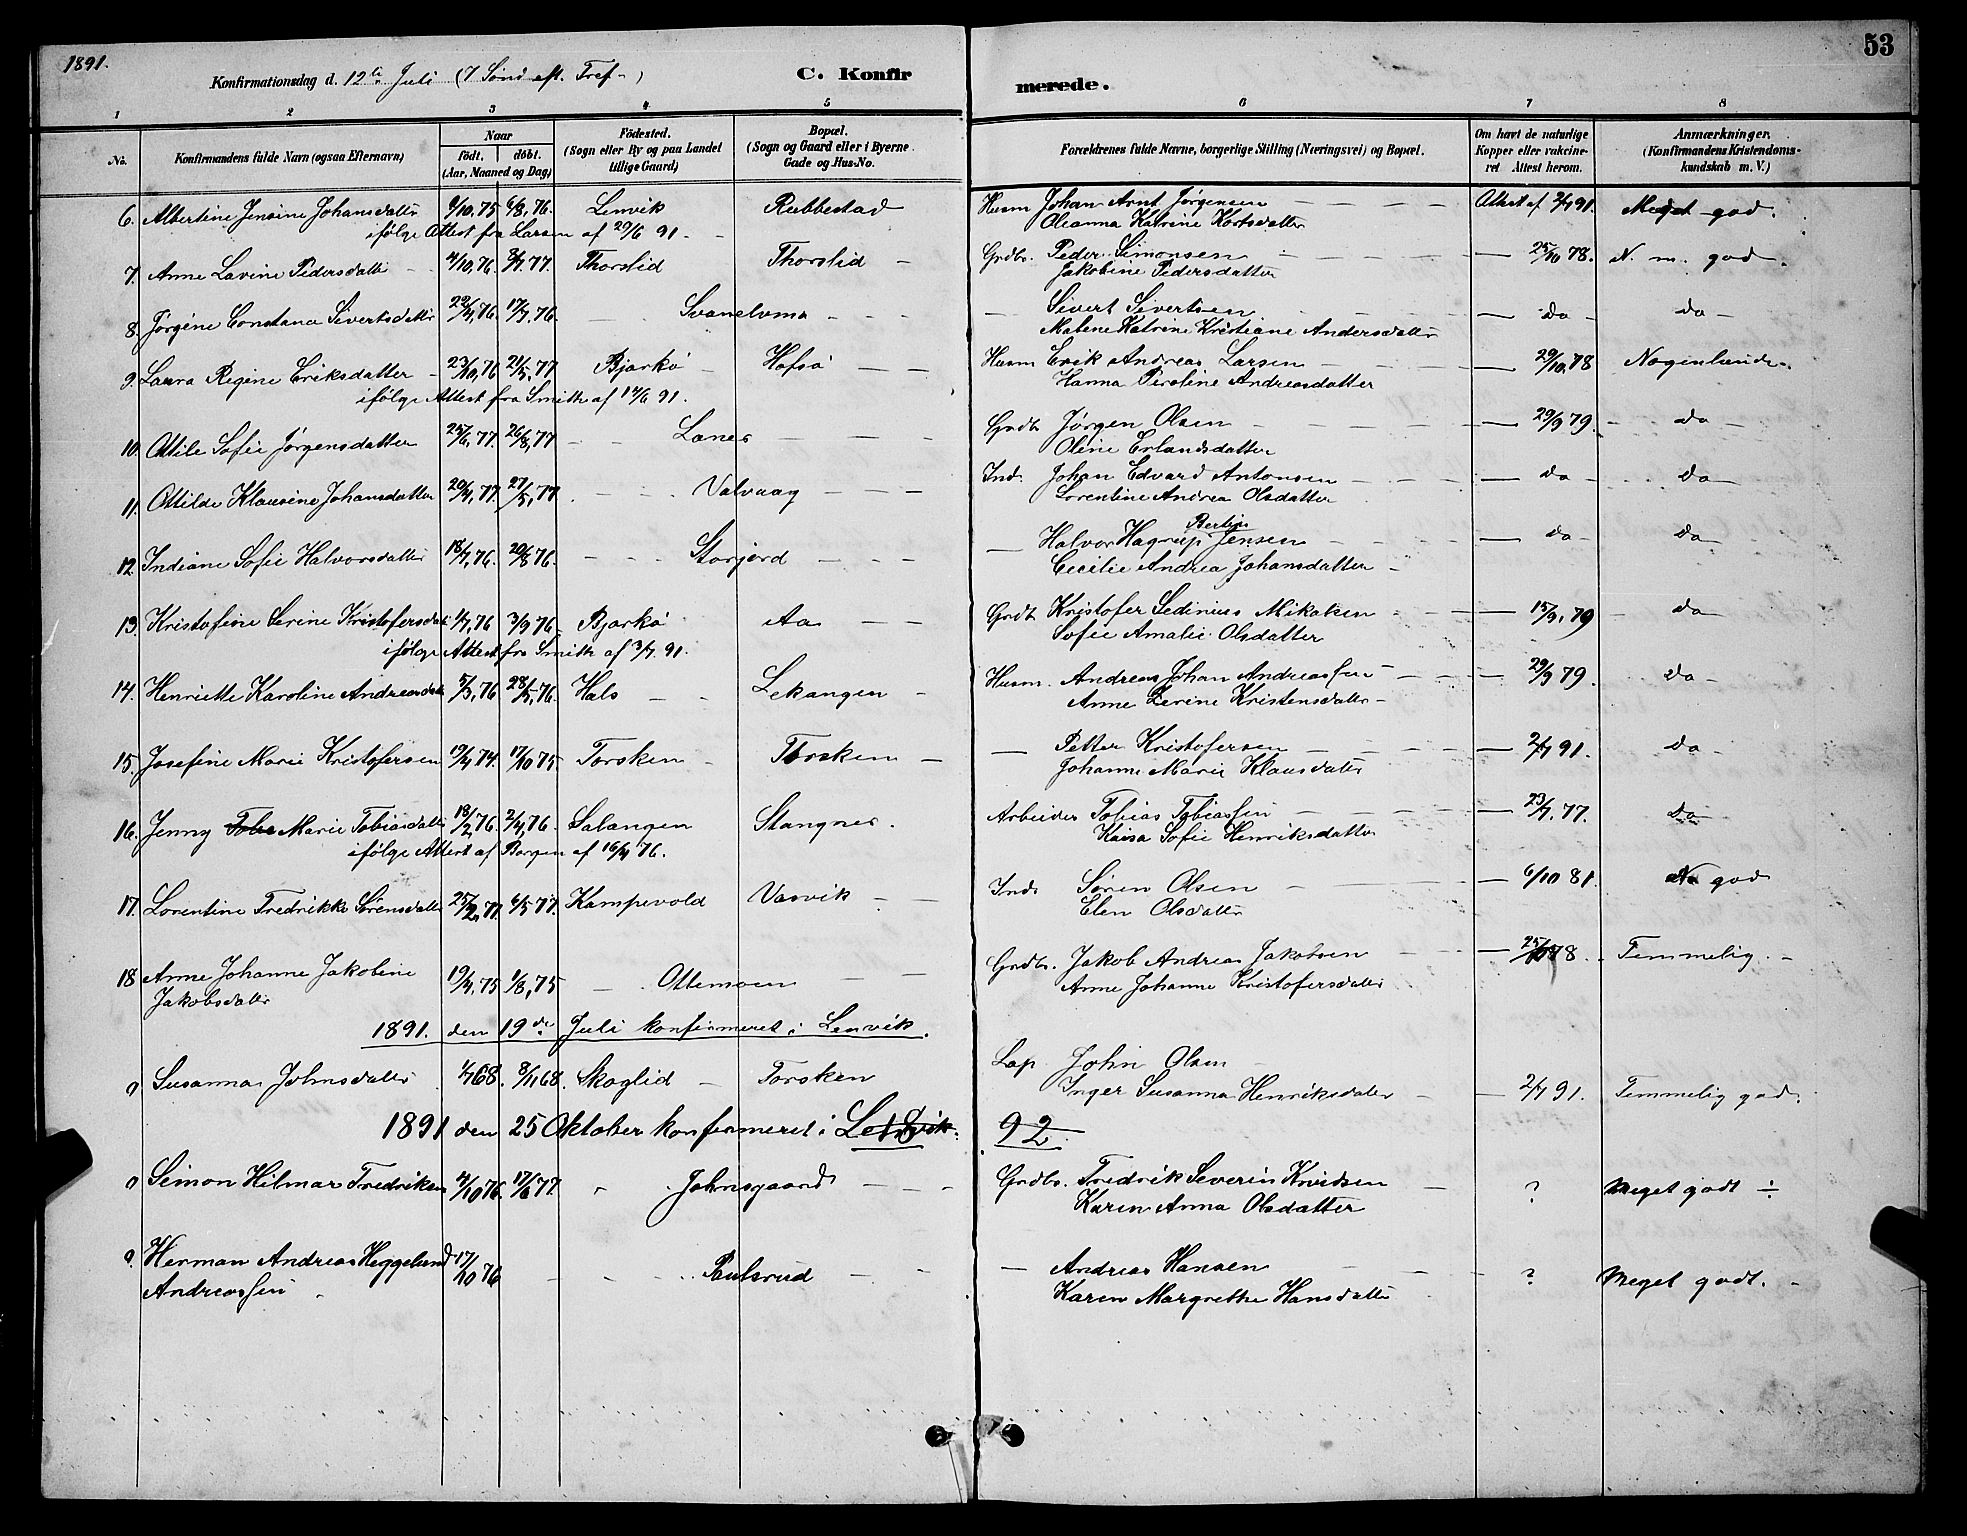 1891.
53
Konfirmationsdag d. 12te Juli (7 Sønd. eft. Tref.)
C. Konfir
merede.
1 2 3 4 5 6 7 8
No.
Konfirmandens fulde Navn (ogsaa Efternavn)
Naar
födt. döbt.
(Aar, Maaned og Dag)
Födested.
(Sogn eller By og paa Landet
tillige Gaard)
Bopæl.
(Sogn og Gaard eller i Byerne
Gade og Hus-No.
Forældrenes fulde Navne, borgerlige Stilling (Næringsvei) og Bopæl.
Om havt de naturlige
Kopper eller vakcine-
ret Attest herom.
Anmærkninger.
(Konfirmandens Kristendoms-
kundskab m. V.)
6. Albertine Jensine Johansdatter 9/10,75 6/8,76. Lenvik Rubbestad Husm Johan Arnt Jørgensen Attest af 2/7 91. Meget god.
Oleanna Katrine Kortsdatter
ifölge Attest fra Larsen af 29/6 91.
7. Anne Lavine Pedersdatter 4/10,76. 2/7.77. Thorslid Thorslid Grdbr. Peder Simonsen 25/10 78. N. m. god.
Jakobine Pedersdatter
8. Jørgine Constanse Sivertsdatter 22/4,76. 17/7.76. Svanelvmo Sivert Sivertsen do do
Malene Katrine Kristiane Andersdatter
9. Laura Regine Eriksdatter 23/10,76 21/5,77 Bjarkö Hofsö Husm Erik Andreas Larsen 29/10.78 Nogenlunde.
Hanna Peroline Andreasdatter
ifölge Attest fra Smith af 14/6 91.
10. Ottile Sofie Jørgensdatter 25/6,77. 26/8,77 Lanes Grdb Jørgen Olsen 29/9 79. do
Oline Erlandsdatter
11. Ottilde Klausine Johansdatter 20/4,77. 27/5,77. Valvaag Ind. Johan Edvard Antonsen do do
Lorentine Andrea Olsdatter
12. Indiane Sofie Halvorsdatter 18/7,76. 20/8 76. Storjord Halvor Hagrup Bertin Jensen do do
Cecilie Andrea Johansdatter
13. Kristofine Serine Kristofersdatter 1/7,76 3/9 76 Bjarkö Aa Grdb Kristofer Sedinius Mikalsen 15/9,79 do
Sofie Amalie Olsdatter
ifölge Attest fra Smith af 3/7.91.
14. Henriette Karoline Andreasdatter 5/3,76 28/5,76. Hals Lekangen Husm. Andreas Johan Andreassen 29/9 79. do
Anne Zerine Kristensdatter
15. Josefine Marie Kristofersen 19/4 74. 17/10 75. Torsken Torsken Petter Kristofersen 2/7 91. do
Johanne Marie Klausdatter
16. Jenny Marie Tobiasdatter 18/2,76. 2/4,76. Salangen Stangnes. Arbeider Tobias Tobiassen 23/7.77. do
Kaisa Sofie Henriksdatter
ifölge Attest af Borgen af 16/4 76.
17. Lorentine Fredrikke Sørensdatter 25/2,77. 6/5 77. Kampevold Vasvik Inds Søren Olsen 6/10 81 god
Elen Olsdatter
18 Anne Johanne Jakobine 19/4,75 1/8,75 Ottemoen Grdbr. Jakob Andreas Jakobsen 25/10 78. Temmelig.
Jakobsdatter Anne Johanne Kristofersdatter
1891. den 19de Juli konfirmeret i Lenvik.
0 Susanna Johnsdatter 1/7 68. 8/11 68. Skoglid Torsken Lap. John Olsen
Inger Susanna Henriksdatter 2/7 91. Temmelig god.
1891 den 25 Oktober konfirmeret i Lenvik. 18
92
0 Simon Hilmar Fredriksen 4/10 76. 17/6 77. Johnsgaard Grdbr. Fredrik Severin Knudsen ? Meget godt ÷
Karen Anna Olsdatter
0. Herman Andreas Heggelund 17/10 76 Paulsrud Andreas Hansen ? Meget godt.
Andreassen Karen Margrethe Hansdatter